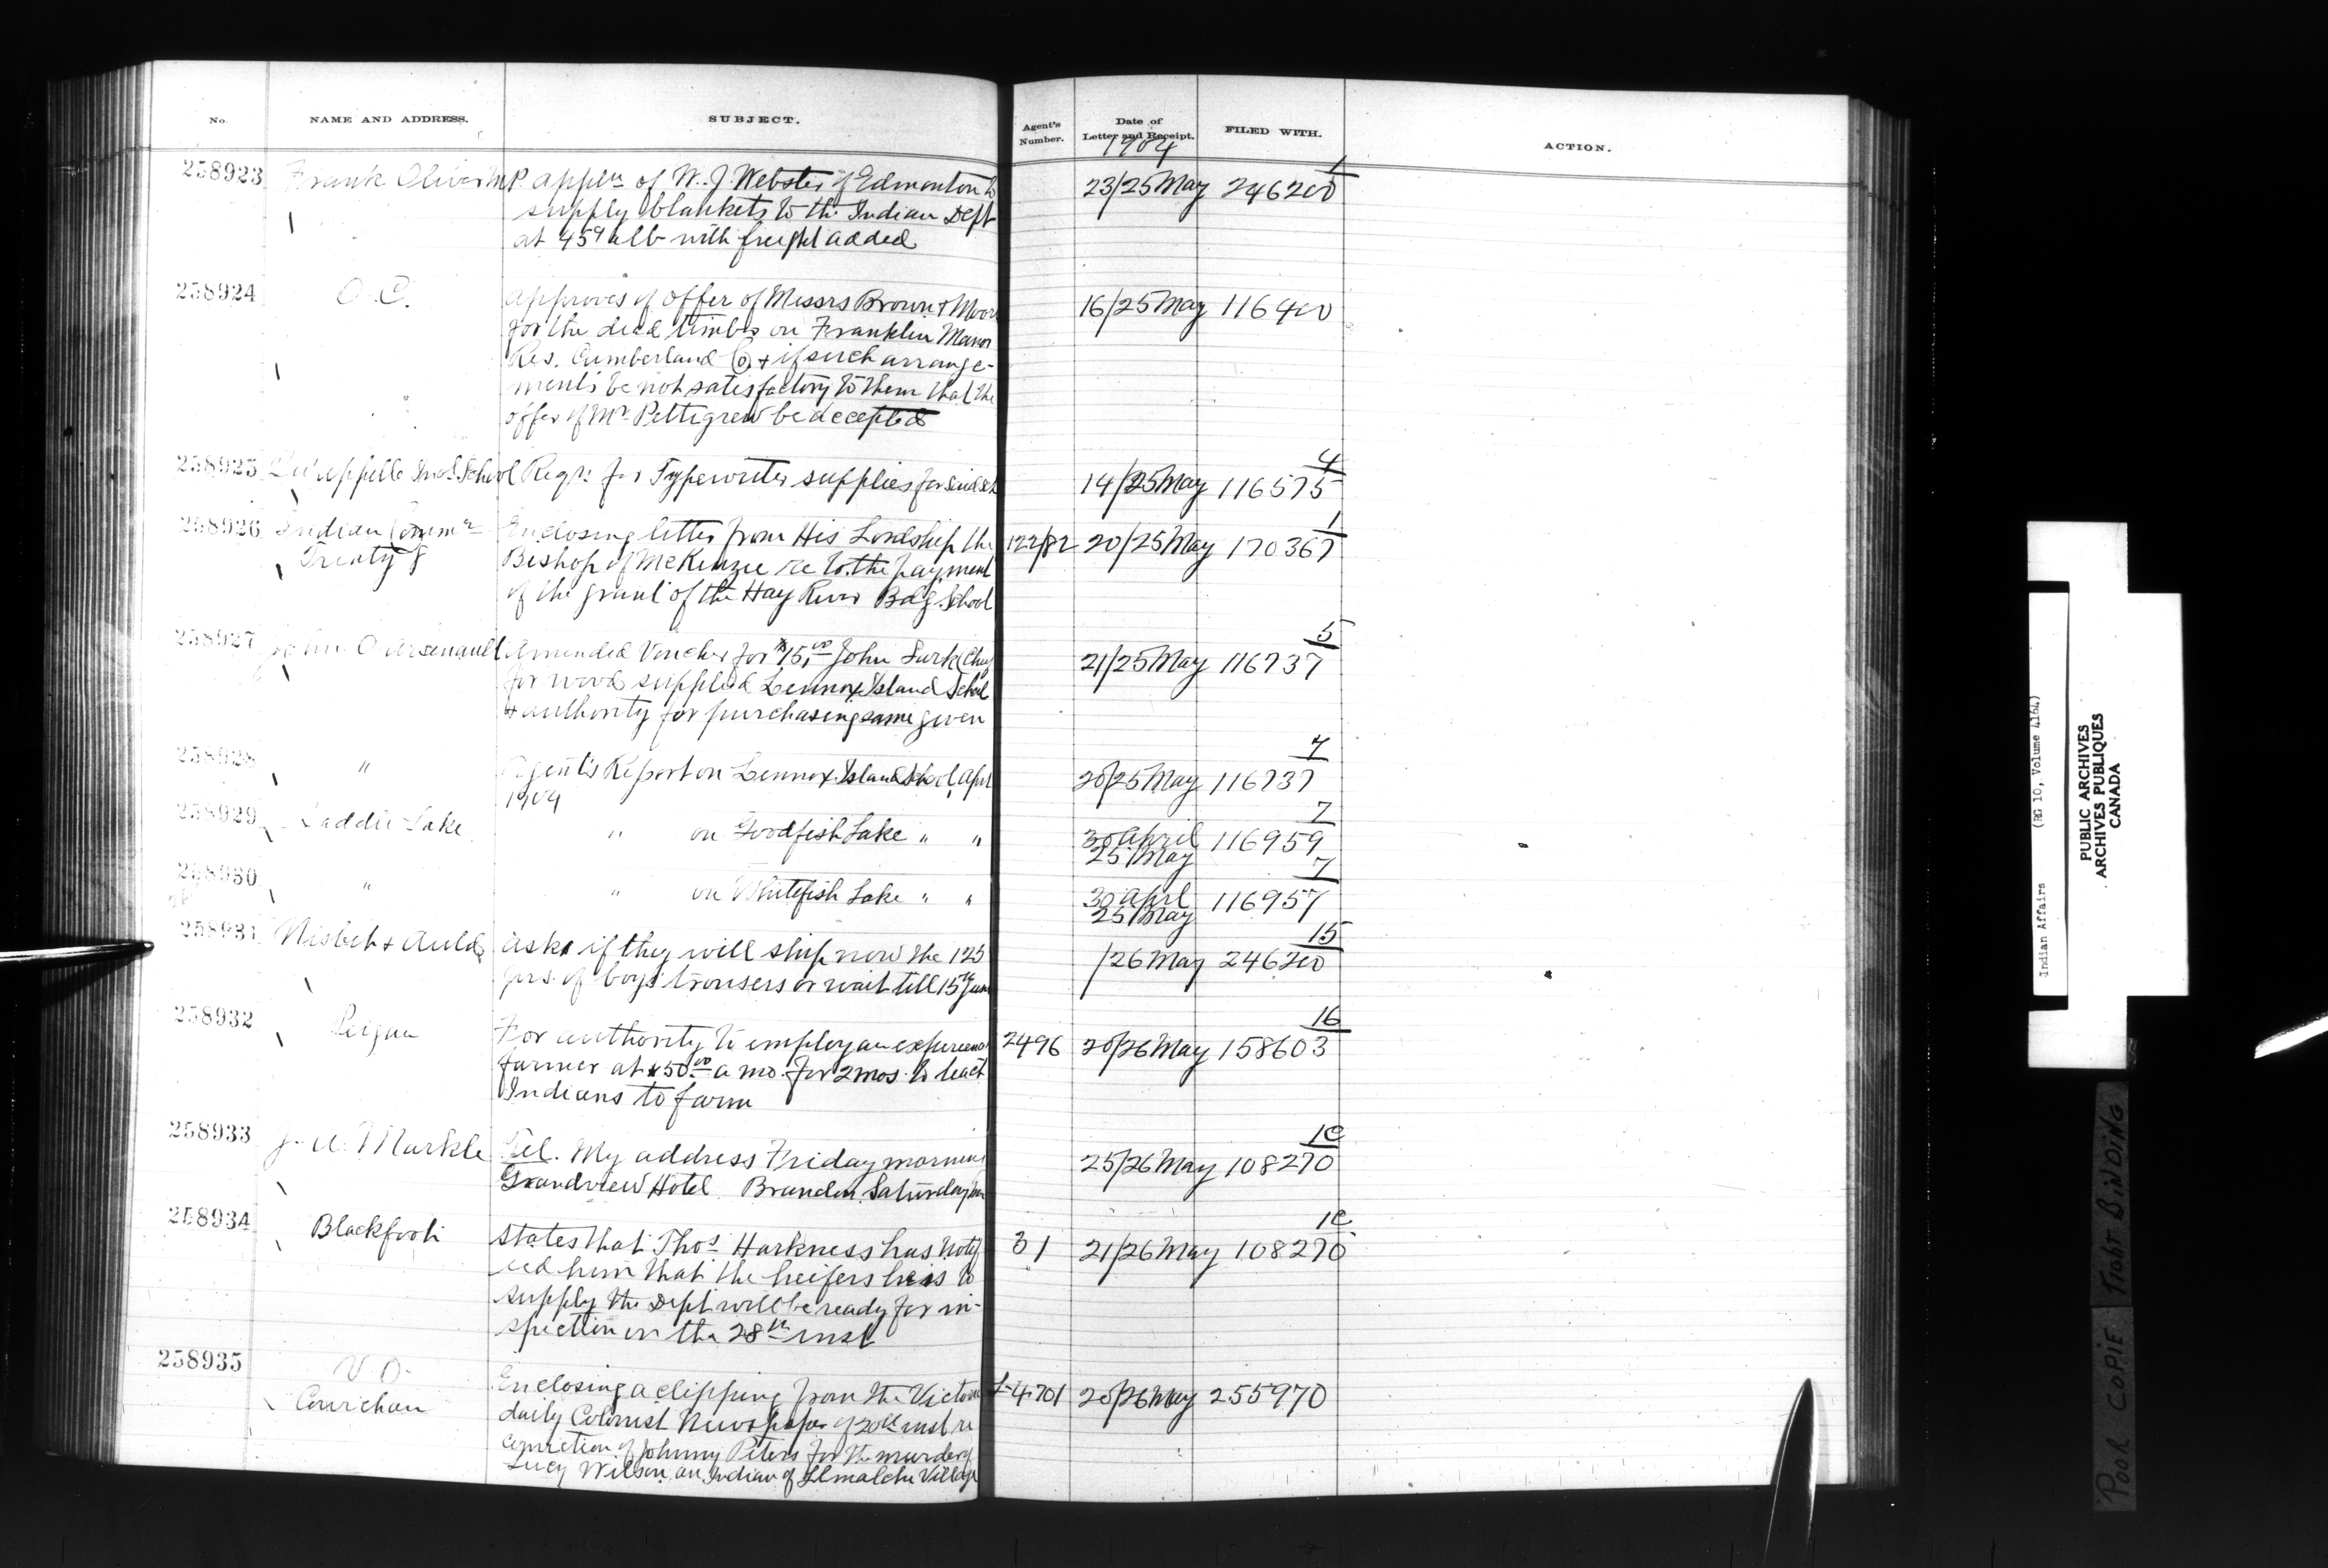 No.
NAME AND ADDRESS.
SUBJECT.
Agent's Number.
Date of Letter and Receipt.
FILED WITH.
ACTION.
1904
258923 Frank Oliver M.P. appln of W. J. Webster of Edmonton to 23/25 May 1 246200
supply blankets to the Indian Dept
at 45¢ a lb with freight added
258924 O.C. approves of offer of Messrs Brown & Moore 16/25 May 116400
for the dead timber on Franklin Manor
Res. Cumberland Co. & if such arrange-
ments be not satisfactory to them that the
offer of Mr Pettigrew be accepted
258925 Qu'appelle Ind. School Reqn for Typewriter supplies for said sch 14/25 May 4 116575
258926 Indian Commr Enclosing letter from His Lordship the 122/82 20/25 May 1 170367
Treaty 8 Bishop of McKenzie re to the payment
of the grant of the Hay River Bdg. School
258927 John O Arsenault Amended Voucher for $15.00 John Sark (Chf 21/25 May 5 116737
for wood supplied Lennox Island School
& authority for purchasing same given
258928 " Agent's Report on Lennox Island School, Apl 20/25 May 7 116737
1904
258929 Saddle Lake " on Goodfish Lake " " 30 April 7 116959
25 May
258930 " " on Whitefish Lake " " 30 April 7 116957
25 May
258931 Nisbet & Auld asks if they will ship now the 125 /26 May 15 246200
prs. of boys trousers or wait till 15th June
258932 Peigan For authority to employ an experienced 2496 20/26 May 16 158603
farmer at $50.00 a mo. for 2 mos. to teach
Indians to farm
258933 J. A. Markle Tel. My address Friday morning 25/26 May 108270
Grandview Hotel Brandon. Saturday
258934 Blackfoot States that Thos Harkness has notif 31 21/26 May 108270
ied him that the heifers he is to
supply the Dept will be ready for in-
spection on the 28th inst
258935 V.O. Enclosing a clipping from the Victoria 4701 20/26 May 255970
Cowichan daily Colonist Newspaper of 20th inst re
conviction of Johnny Peters for the murder of
Lucy Wilson an Indian of Llmalche Village
Indian Affairs (RG 10, Volume 4164)
PUBLIC ARCHIVES
ARCHIVES PUBLIQUES
CANADA
POOR COPIE TIGHT BINDING